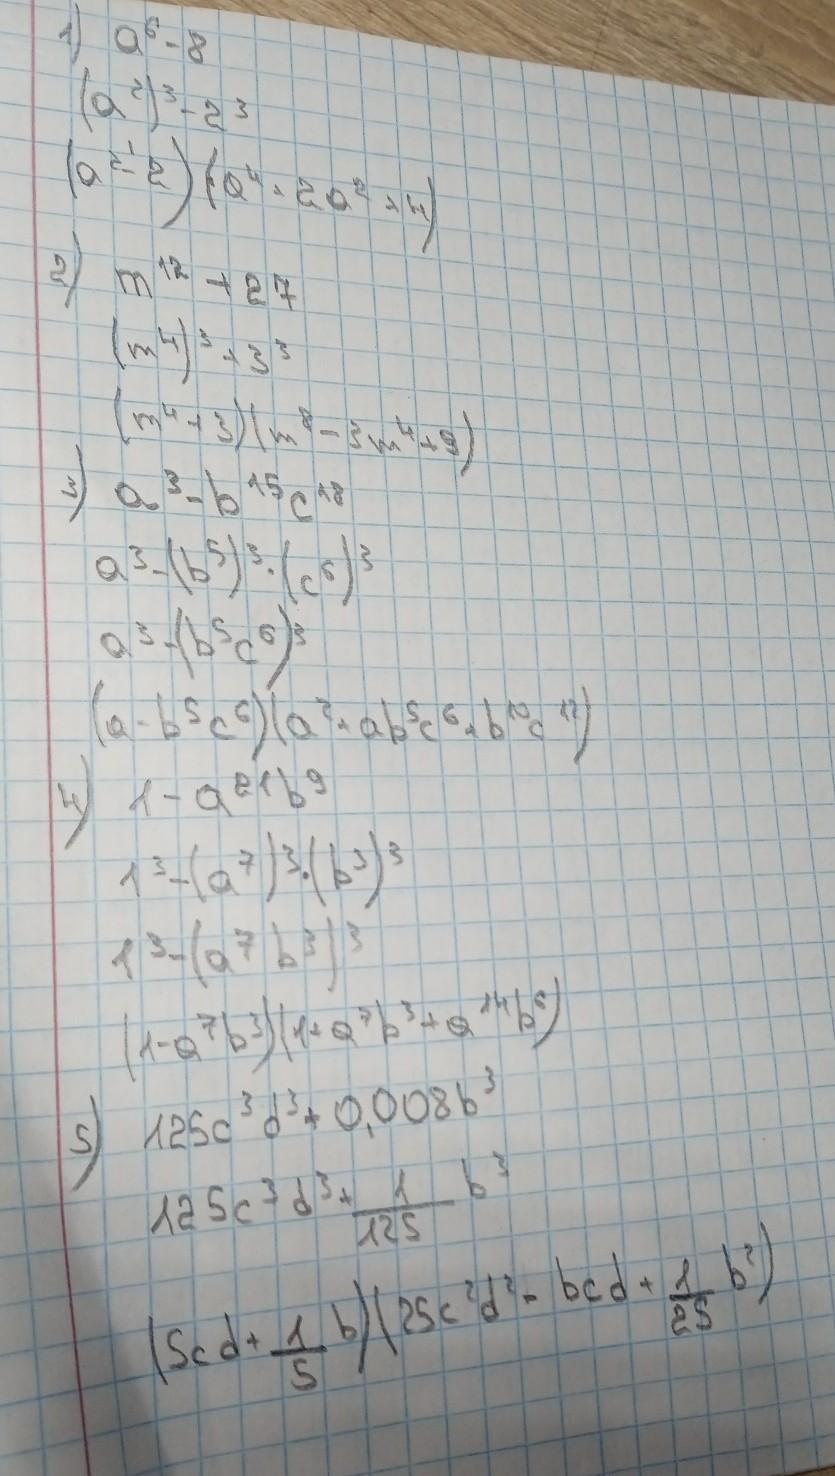 1) a⁶-8
(a²)³-2³
(a²-2)(a⁴+2a²+4)
2) m¹²+27
(m⁴)³+3³
(m⁴+3)(m⁸-3m⁴+9)
3) a³-b¹⁵c¹⁸
a³-(b⁵)³·(c⁶)³
a³-(b⁵c⁶)³
(a-b⁵c⁶)(a²+ab⁵c⁶+b¹⁰c¹²)
4) 1-a²¹b⁹
1³-(a⁷)³·(b³)³
1³-(a⁷b³)³
(1-a⁷b³)(1+a⁷b³+a¹⁴b⁶)
5) 125c³d³+0,008b³
125c³d³+1/125 b³
(5cd+1/5 b)(25c²d²-bcd+1/25 b²)